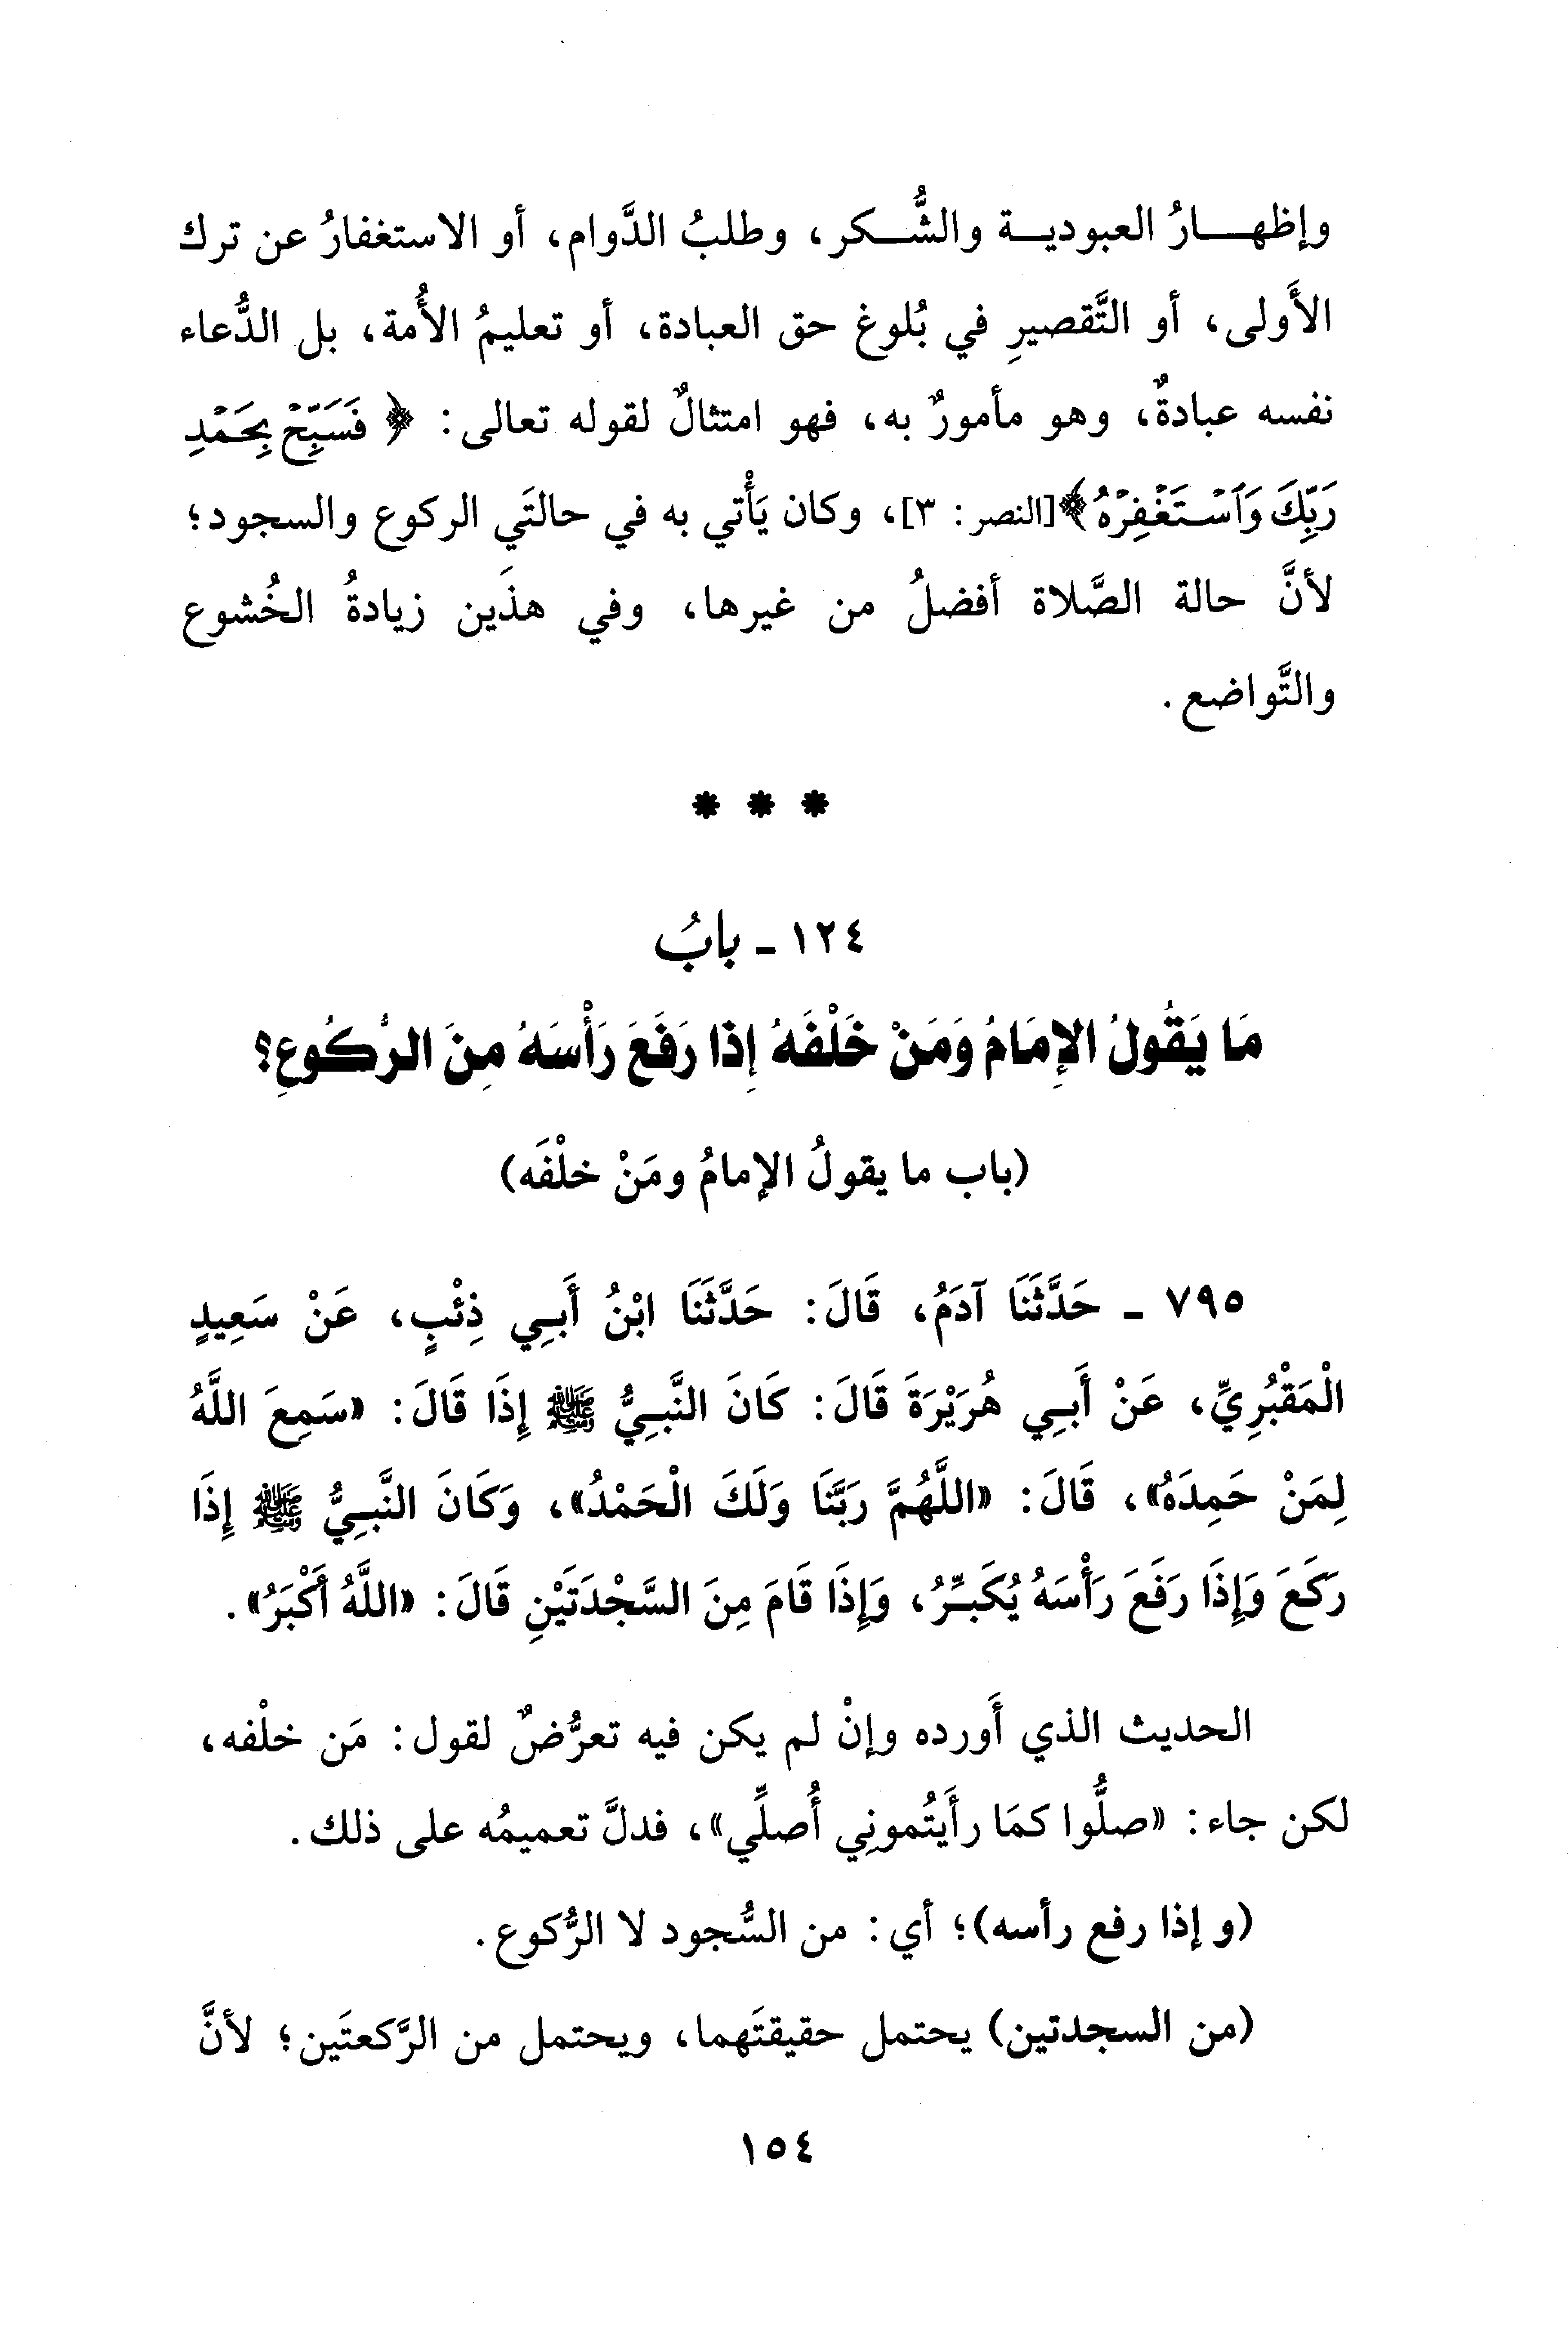 وإظهارُ العبودية والشُّكر، وطلبُ الدَّوام، أو الاستغفارُ عن ترك
الأَولى، أو التَّقصيرِ في بُلوغ حق العبادة، أو تعليمُ الأُمة، بل الدُّعاء
نفسه عبادةٌ، وهو مأمورٌ به، فهو امتثالٌ لقوله تعالى: ﴿ فَسَبِّحْ بِحَمْدِ
رَبِّكَ وَٱسْتَغْفِرْهُ ﴾[النصر: ٣]، وكان يَأْتي به في حالتَي الركوع والسجود؛
لأنَّ حالة الصَّلاة أفضلُ من غيرها، وفي هذَين زيادةُ الخُشوع
والتَّواضع.
* * *
١٢٤ - بابُ
مَا يَقُولُ الإِمَامُ وَمَنْ خَلْفَهُ إِذا رَفَعَ رَأْسَهُ مِنَ الرُّكُوعِ؟
(باب ما يقولُ الإمامُ ومَنْ خلْفَه)
٧٩٥ - حَدَّثَنَا آدَمُ، قَالَ: حَدَّثَنَا ابْنُ أَبِي ذِئْبٍ، عَنْ سَعِيدٍ
الْمَقْبُرِيِّ، عَنْ أَبِي هُرَيْرَةَ قَالَ: كَانَ النَّبِيُّ ﷺ إِذَا قَالَ: «سَمِعَ اللَّهُ
لِمَنْ حَمِدَهُ»، قَالَ: «اللَّهُمَّ رَبَّنَا وَلَكَ الْحَمْدُ»، وَكَانَ النَّبِيُّ ﷺ إِذَا
رَكَعَ وَإِذَا رَفَعَ رَأْسَهُ يُكَبِّرُ، وَإِذَا قَامَ مِنَ السَّجْدَتَيْنِ قَالَ: «اللَّهُ أَكْبَرُ».
الحديث الذي أَورده وإنْ لم يكن فيه تعرُّضٌ لقول: مَن خلْفه،
لكن جاء: «صلُّوا كمَا رأَيتُموني أُصلِّي»، فدلَّ تعميمُه على ذلك.
(و إذا رفع رأسه)؛ أي: من السُّجود لا الرُّكوع.
(من السجدتين) يحتمل حقيقتَهما، ويحتمل من الرَّكعتَين؛ لأنَّ
١٥٤